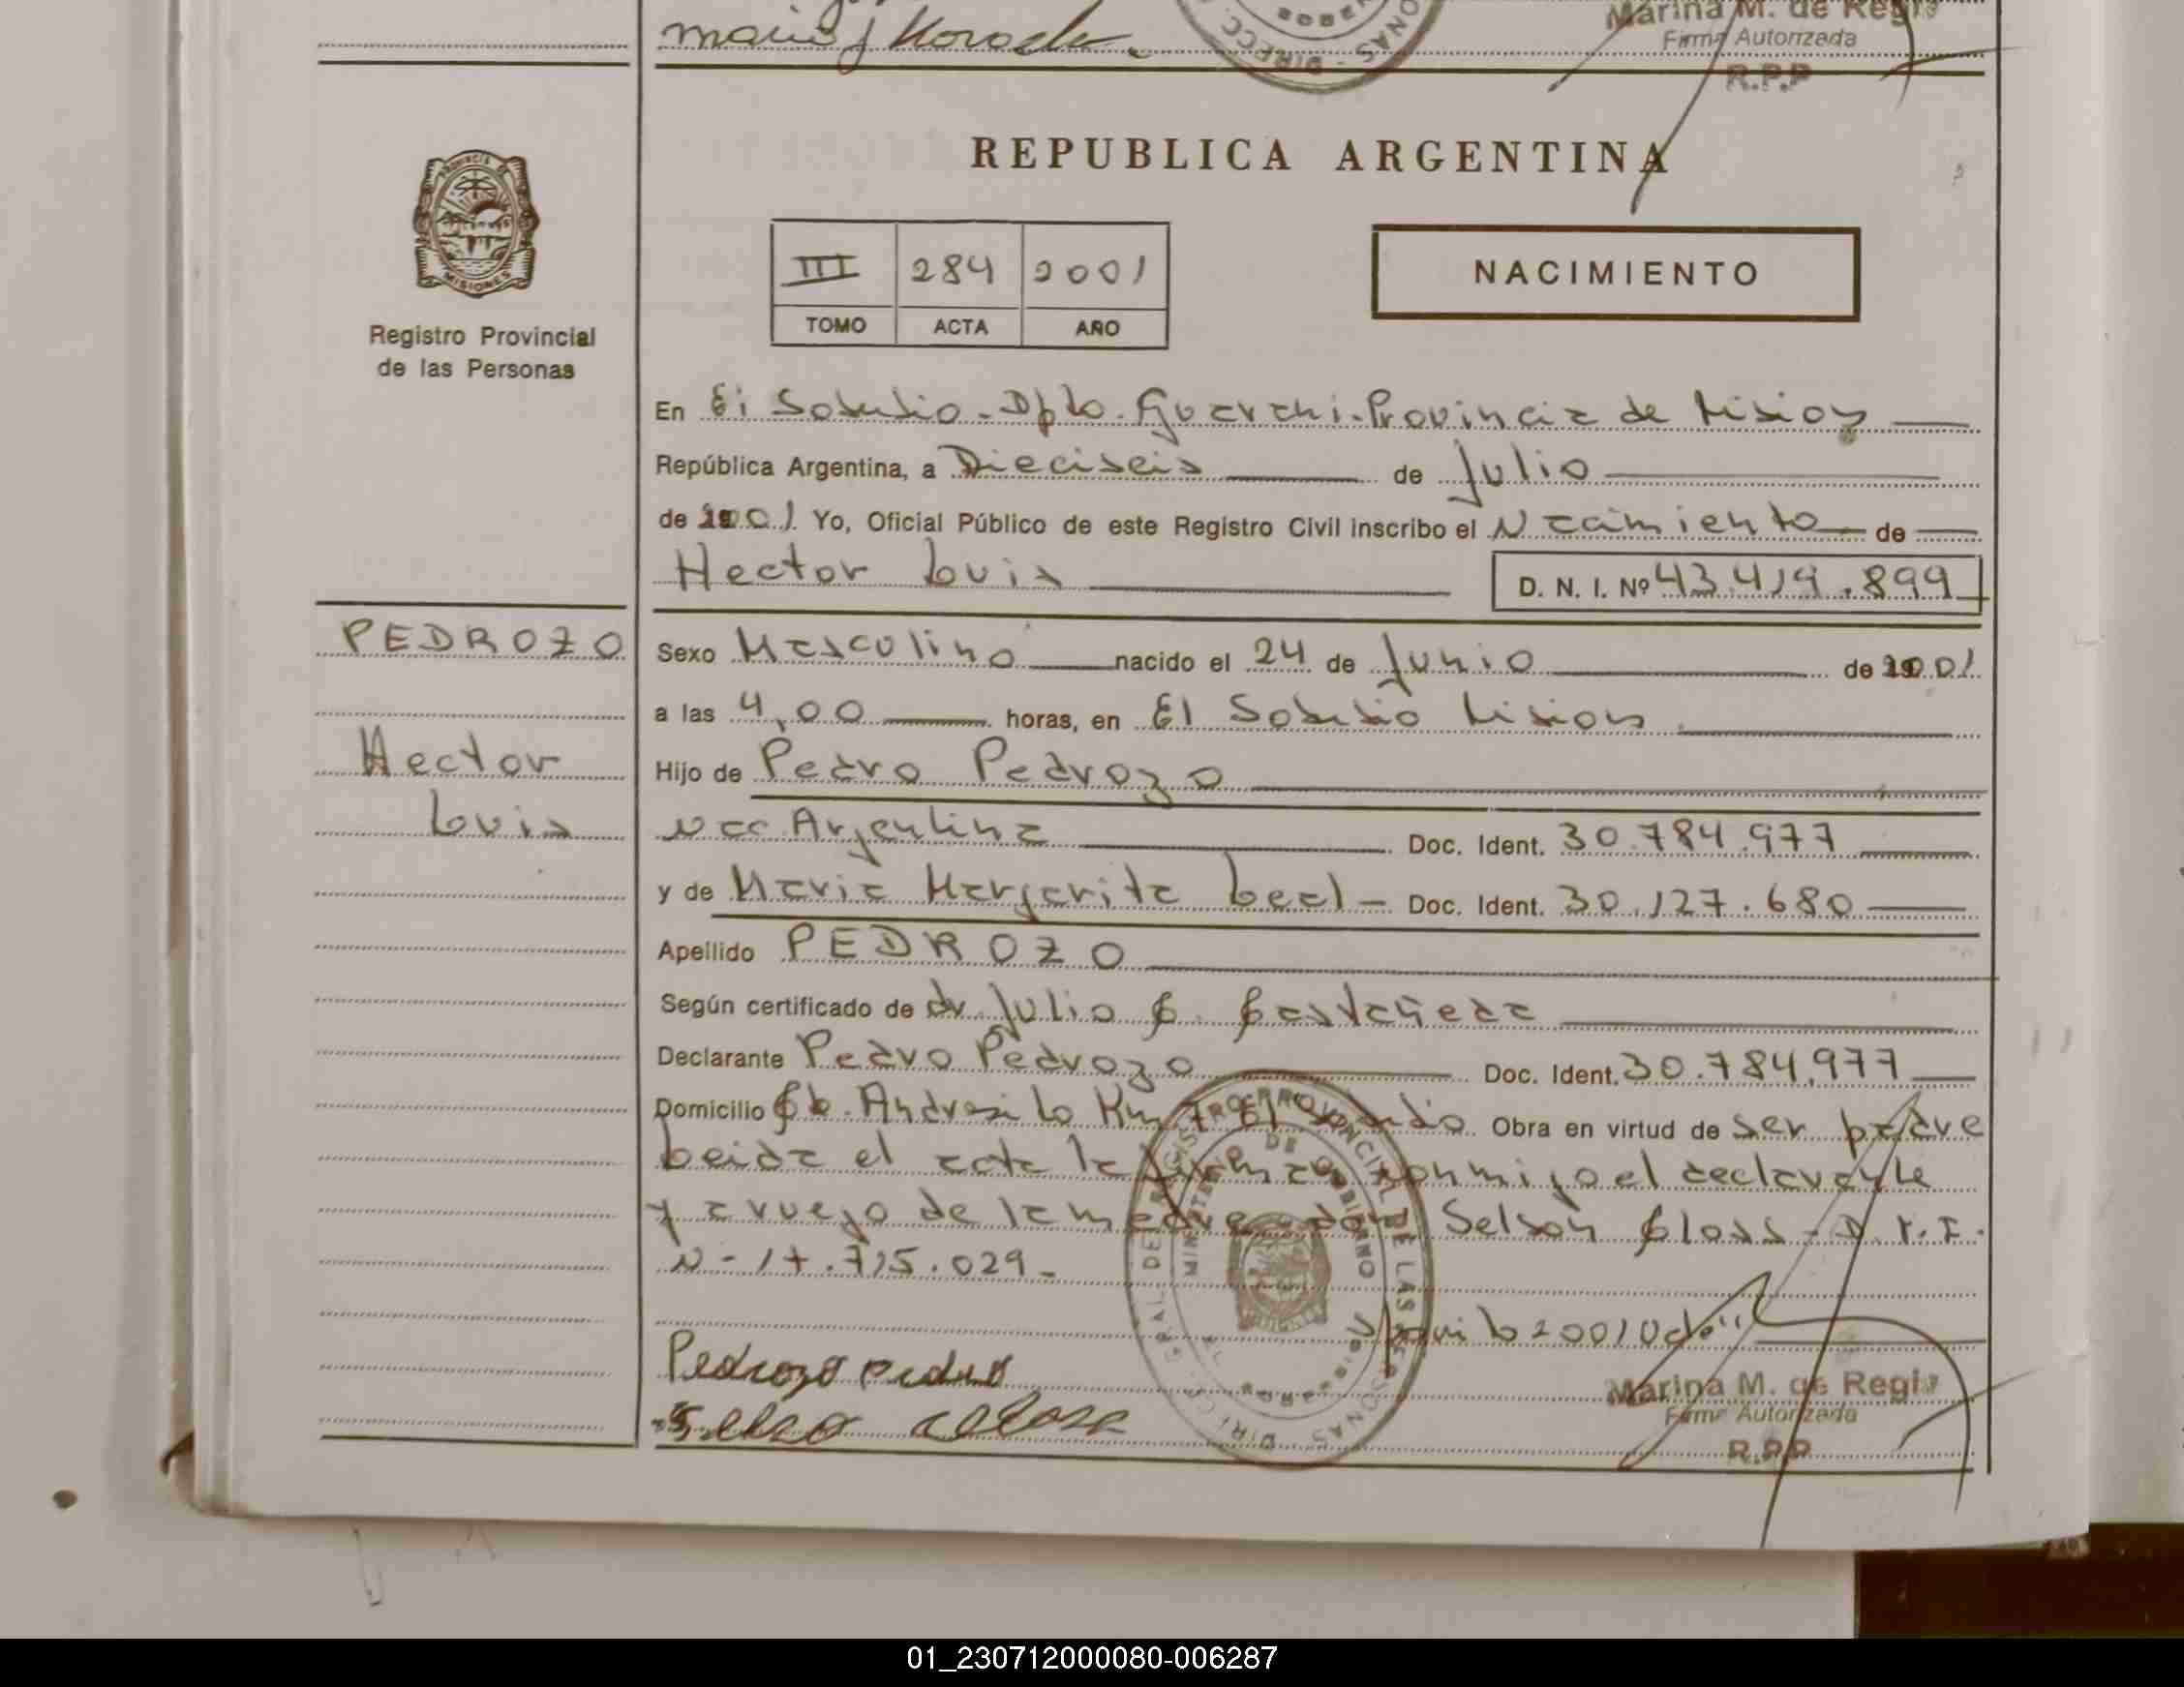 Marina M. de Regis
Firma Autorizada
R.P.P
REPUBLICA ARGENTINA
III 284 2001
TOMO ACTA AÑO
NACIMIENTO
PROVINCIA
MISIONES
Registro Provincial
de las Personas
En El Soberbio - Dpto. Guarani - Provincia de Misiones
República Argentina, a Dieciseis de Julio
de 2001 Yo, Oficial Público de este Registro Civil inscribo el Nacimiento de
Hector Luis D. N. I. Nº 43.419.899
PEDROZO
Hector
Luis
Sexo Masculino nacido el 24 de Junio de 2001
a las 4,00 horas, en El Soberbio Misiones
Hijo de Pedro Pedrozo
Nac Argentina Doc. Ident. 30.784.977
y de Maria Margarita Leal - Doc. Ident. 30.127.680
Apellido PEDROZO
Según certificado de dr. Julio C. Castañeda
Declarante Pedro Pedrozo Doc. Ident. 30.784.977
Domicilio Andresito Km 7 El Soberbio Obra en virtud de ser padre
Leida el acta la firma conmigo el declarante
y a ruego de la madre don Selson Closs - D.N.I.
N - 17.715.029 -
2001
Pedrozo Pedro
Marina M. de Regis
Firma Autorizada
R.P.P
01_230712000080-006287